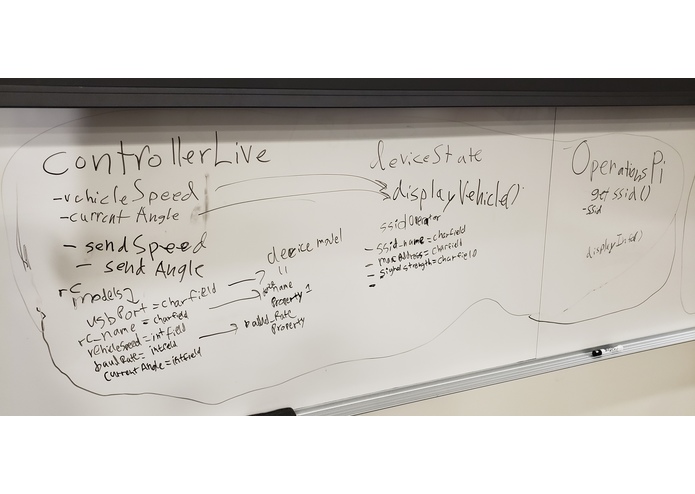 controllerLive
-vehicleSpeed
-current Angle
- sendSpeed
- send Angle
rc
models
usbPort = charfield
rc_name = charfield
vehicleSpeed = intfield
baudRate = intfield
currentAngle = intfield
device model
Property 1
baud_Rate
Property
deviceState
displayVehicle()
ssidOperator
- ssid_name = charfield
- macAddress = charfield
- signalstrength = charfield
-
OperationsPi
get ssid()
-ssid